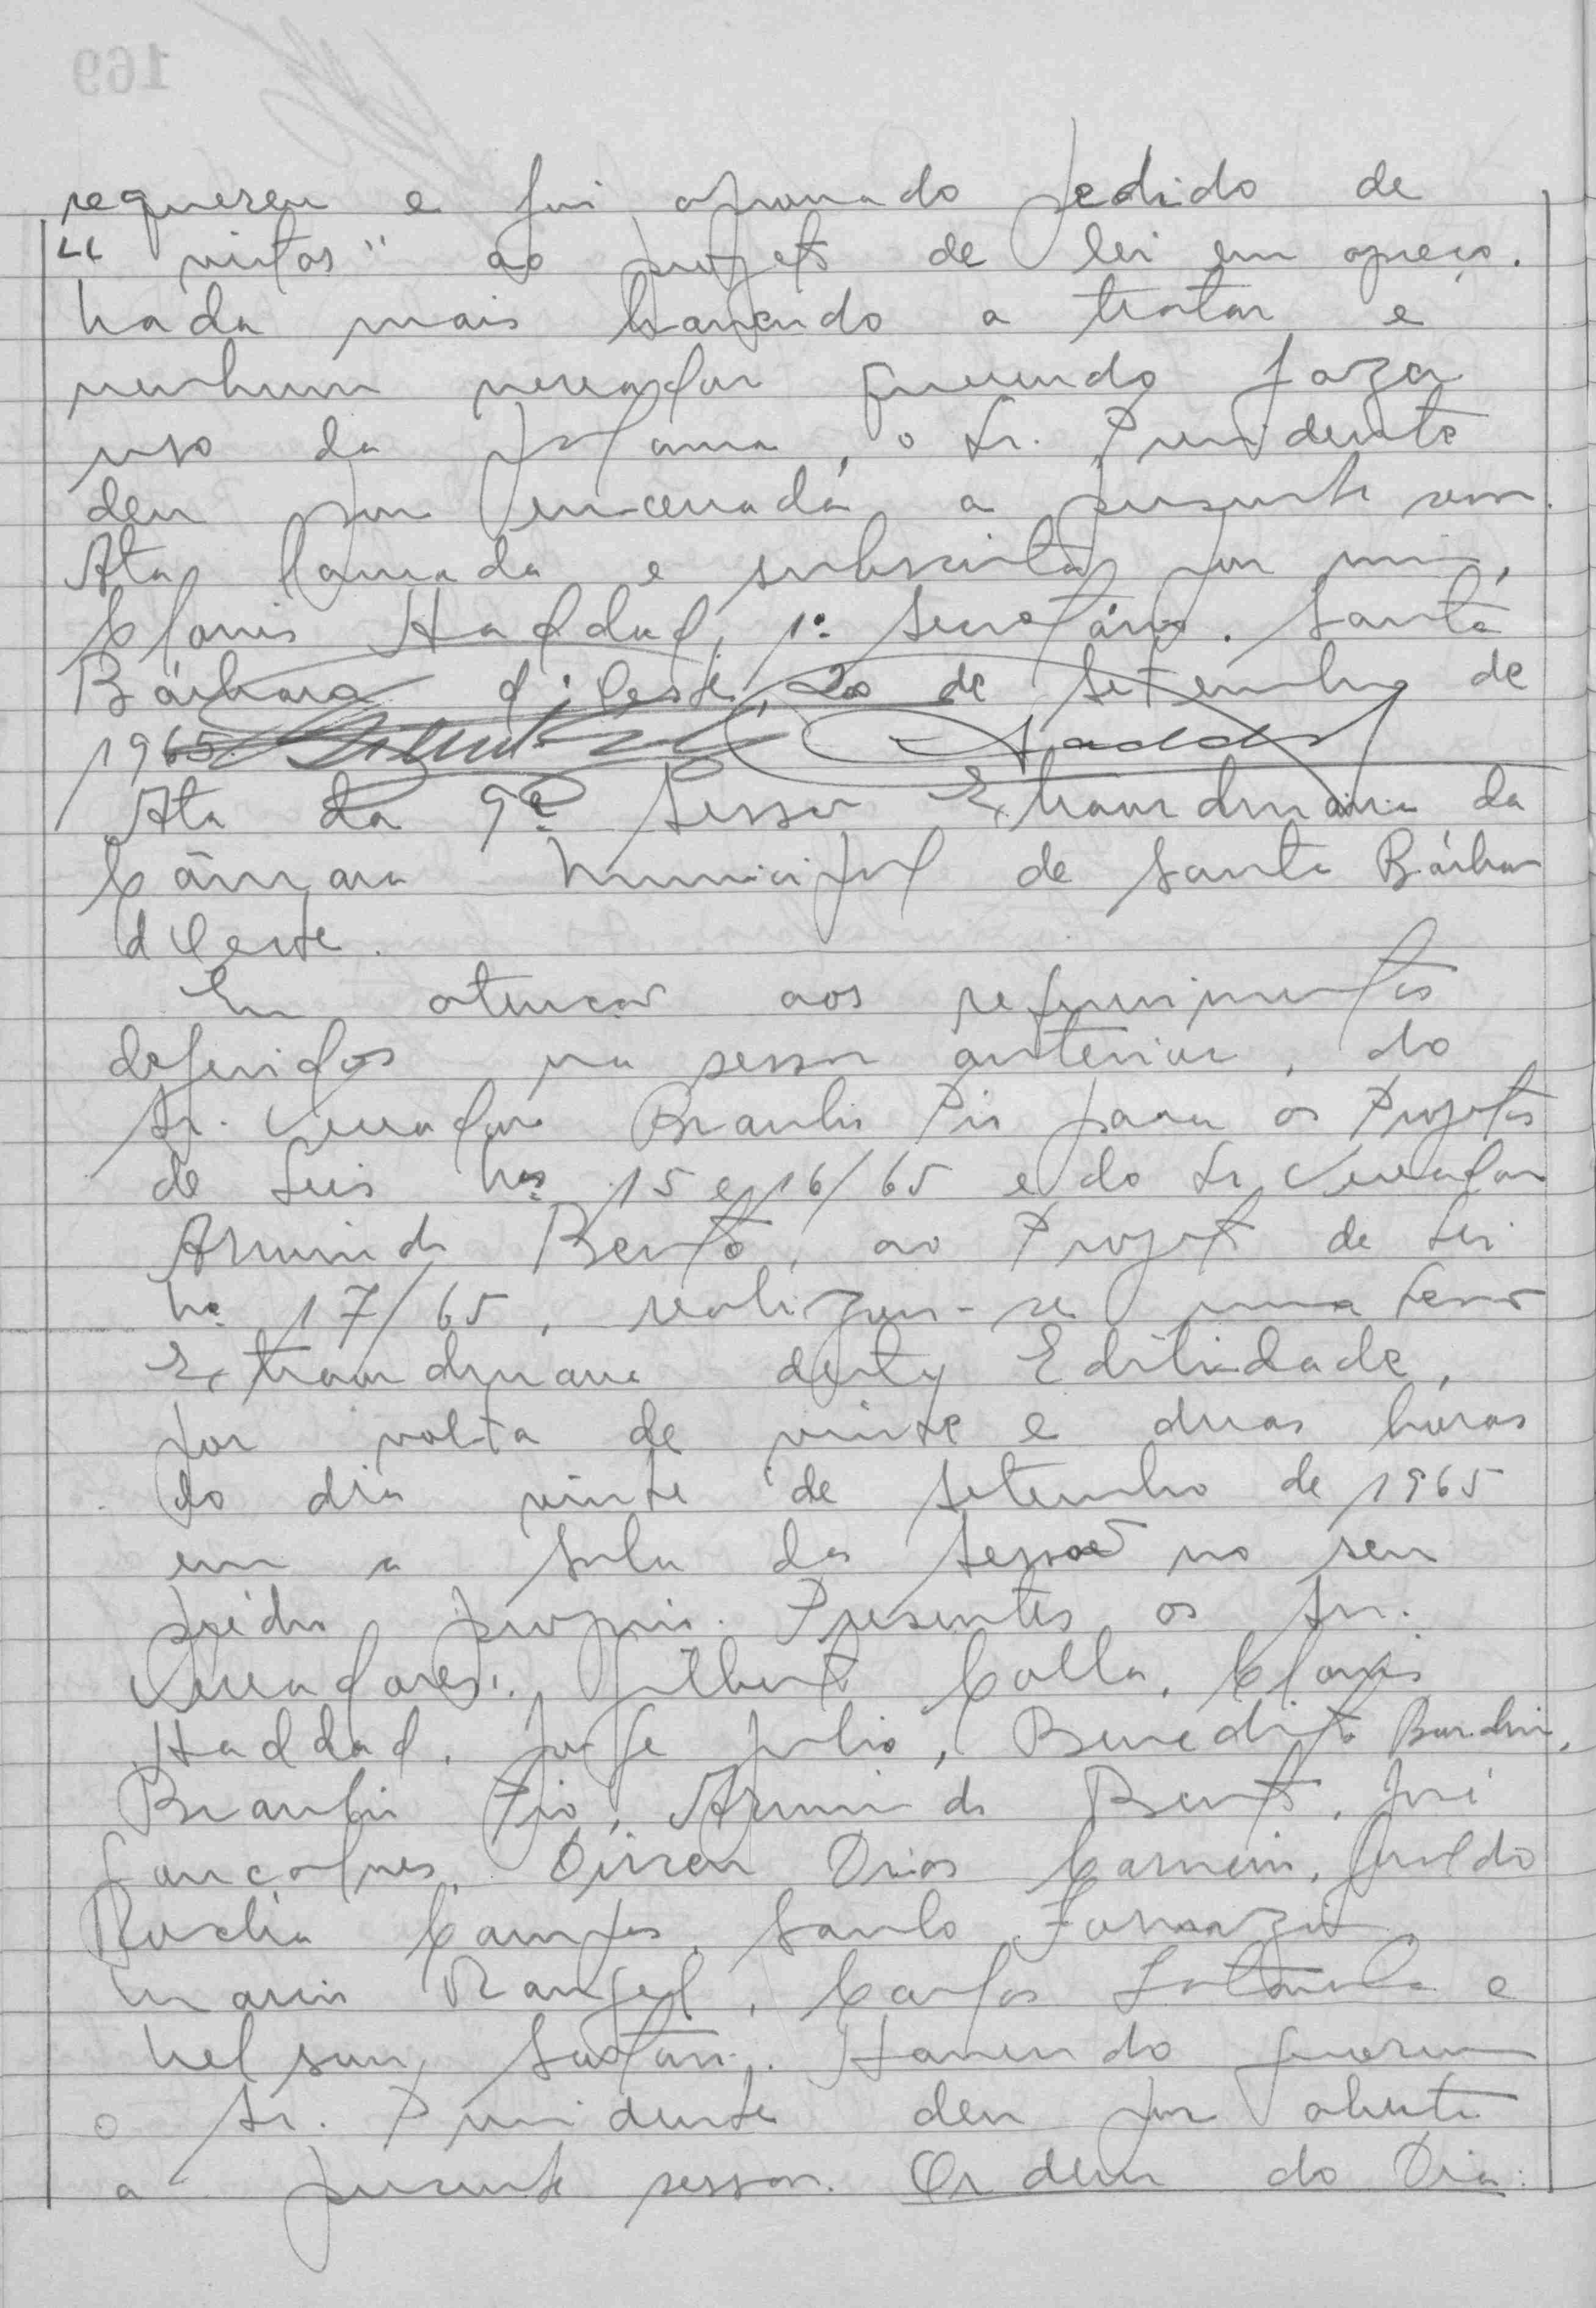 requereu e foi aprovado pedido de
"vistas" ao projeto de lei em apreço.
Nada mais havendo a tratar e
nenhum vereador querendo fazer
uso da palavra, o Sr. Presidente
deu por encerrada a presente sessão.
Ata lavrada e subscrita por mim,
Clovis Haddad, 1º Secretário. Santa
Bárbara d'Oeste, 20 de Setembro de
1965. Haddad
Ata da 9ª Sessão Extraordinária da
Câmara Municipal de Santa Bárbara
d'Oeste.
Em atenção aos requerimentos
deferidos na sessão anterior, do
Sr. Vereador Braulio Pio para os Projetos
de Leis Nos. 15 e 16/65 e do Sr. Vereador
Armindo Bento, ao Projeto de Lei
Nº 17/65, realizou-se uma sessão
Extraordinária desta Edilidade,
por volta de vinte e duas horas
do dia vinte de Setembro de 1965
em a Sala das Sessões no seu
prédio próprio. Presentes os Srs.
Vereadores: Gilberto Colla, Clovis
Haddad, José Julio, Benedito
Braulio Pio, Armindo Bento, José
Gonçalves, Dirceu Dias Carneiro, Geraldo
Rocha Campos, Saulo Fornazin
Mario Rangel, Carlos e
Nelson. Havendo quorum
o Sr. Presidente deu por aberta
a presente sessão. Ordem do Dia: